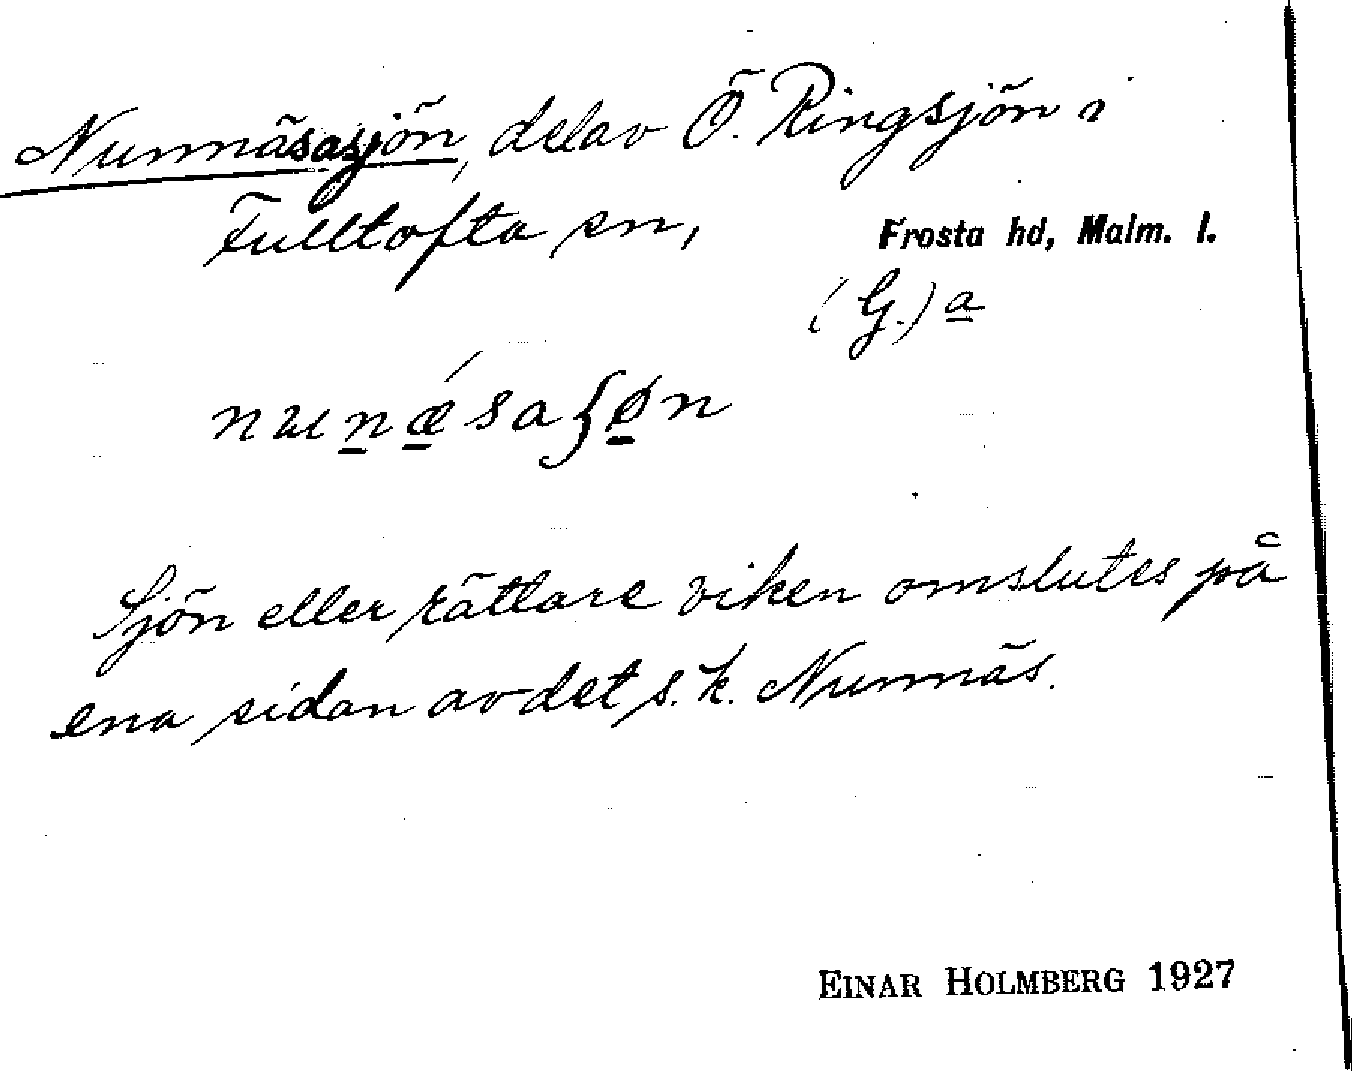 Nunnäsasjön, del av Ö. Ringsjön i
Fulltofta sn, Frosta hd, Malm. l.
(G.) a
Sjön eller rättare viken omslutes på
ena sidan av det s.k. Nunnäs.
EINAR HOLMBERG 1927